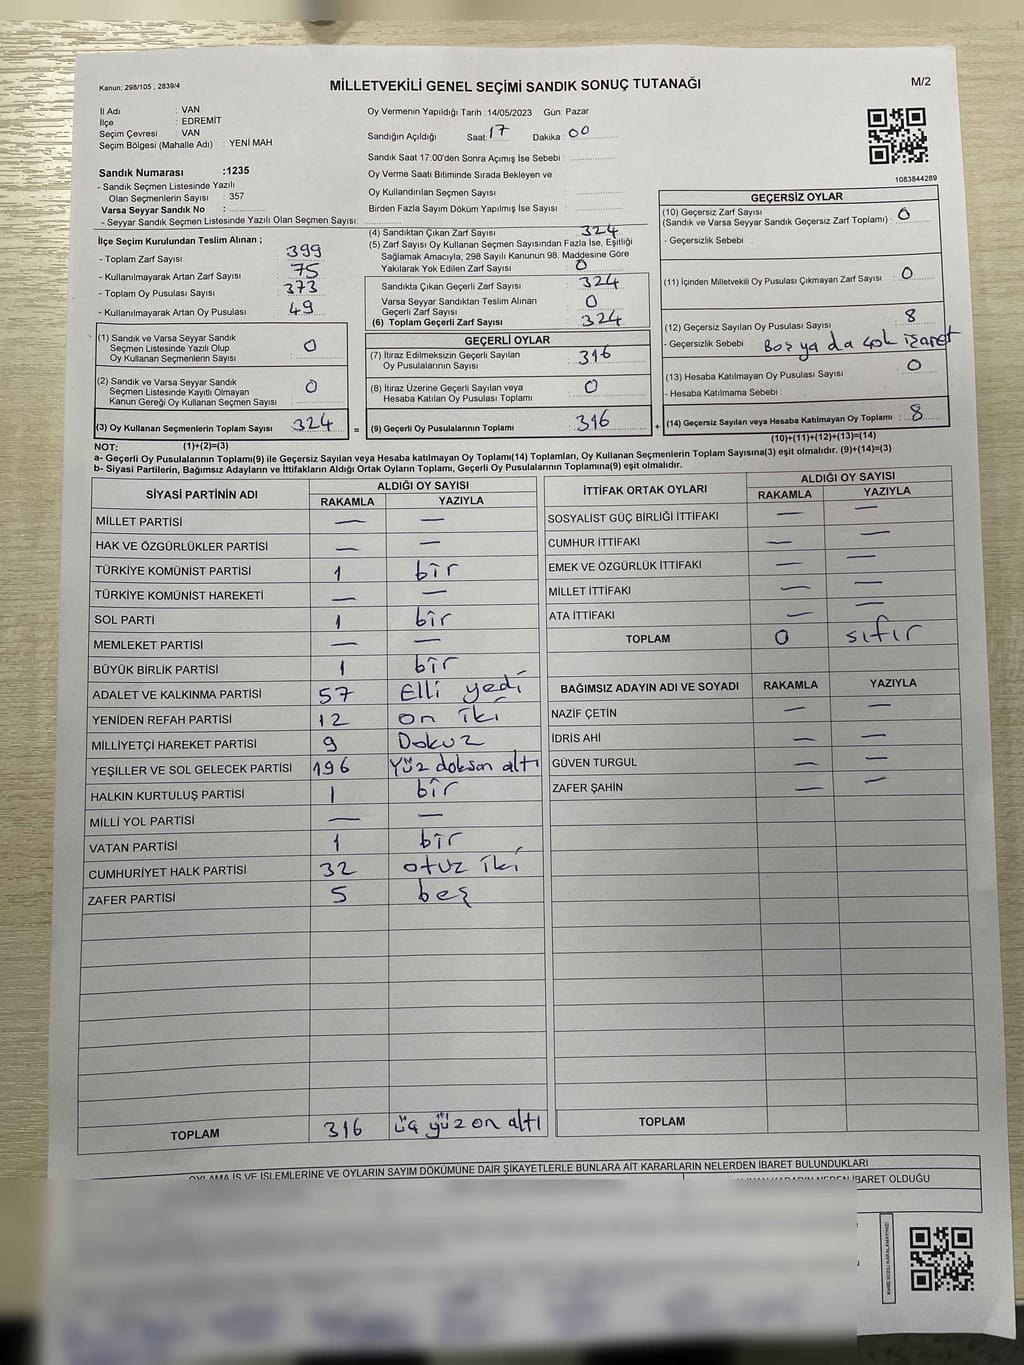 Kanun; 298/105 , 2839/4
MİLLETVEKİLİ GENEL SEÇİMİ SANDIK SONUÇ TUTANAĞI
M/2
İl Adı : VAN
İlçe : EDREMİT
Seçim Çevresi : VAN
Seçim Bölgesi (Mahalle Adı) : YENİ MAH.
Oy Vermenin Yapıldığı Tarih : 14/05/2023 Gün: Pazar
Sandığın Açıldığı Saat: 17 Dakika : 00
Sandık Saat 17:00'den Sonra Açımış İse Sebebi :
Oy Verme Saati Bitiminde Sırada Bekleyen ve
Oy Kullandırılan Seçmen Sayısı :
Birden Fazla Sayım Döküm Yapılmış İse Sayısı :
1083844289
Sandık Numarası :1235
- Sandık Seçmen Listesinde Yazılı
Olan Seçmenlerin Sayısı : 357
Varsa Seyyar Sandık No :
- Seyyar Sandık Seçmen Listesinde Yazılı Olan Seçmen Sayısı:
İlçe Seçim Kurulundan Teslim Alınan ;
- Toplam Zarf Sayısı : 399
- Kullanılmayarak Artan Zarf Sayısı : 75
- Toplam Oy Pusulası Sayısı : 373
- Kullanılmayarak Artan Oy Pusulası : 49
(1) Sandık ve Varsa Seyyar Sandık
Seçmen Listesinde Yazılı Olup
Oy Kullanan Seçmenlerin Sayısı : 0
(2) Sandık ve Varsa Seyyar Sandık
Seçmen Listesinde Kayıtlı Olmayan
Kanun Gereği Oy Kullanan Seçmen Sayısı : 0
(3) Oy Kullanan Seçmenlerin Toplam Sayısı : 324
(4) Sandıktan Çıkan Zarf Sayısı : 324
(5) Zarf Sayısı Oy Kullanan Seçmen Sayısından Fazla İse, Eşitliği
Sağlamak Amacıyla, 298 Sayılı Kanunun 98. Maddesine Göre
Yakılarak Yok Edilen Zarf Sayısı : 0
Sandıkta Çıkan Geçerli Zarf Sayısı : 324
Varsa Seyyar Sandıktan Teslim Alınan
Geçerli Zarf Sayısı : 0
(6) Toplam Geçerli Zarf Sayısı : 324
GEÇERLİ OYLAR
(7) İtiraz Edilmeksizin Geçerli Sayılan
Oy Pusulalarının Sayısı : 316
(8) İtiraz Üzerine Geçerli Sayılan veya
Hesaba Katılan Oy Pusulası Toplamı : 0
= (9) Geçerli Oy Pusulalarının Toplamı : 316
GEÇERSİZ OYLAR
(10) Geçersiz Zarf Sayısı
(Sandık ve Varsa Seyyar Sandık Geçersiz Zarf Toplamı) : 0
- Geçersizlik Sebebi :
(11) İçinden Milletvekili Oy Pusulası Çıkmayan Zarf Sayısı : 0
(12) Geçersiz Sayılan Oy Pusulası Sayısı : 8
- Geçersizlik Sebebi : Boş ya da çok işaret
(13) Hesaba Katılmayan Oy Pusulası Sayısı : 0
- Hesaba Katılmama Sebebi :
+ (14) Geçersiz Sayılan veya Hesaba Katılmayan Oy Toplamı : 8
NOT: (1)+(2)=(3)
(10)+(11)+(12)+(13)=(14)
a- Geçerli Oy Pusulalarının Toplamı(9) ile Geçersiz Sayılan veya Hesaba katılmayan Oy Toplamı(14) Toplamları, Oy Kullanan Seçmenlerin Toplam Sayısına(3) eşit olmalıdır. (9)+(14)=(3)
b- Siyasi Partilerin, Bağımsız Adayların ve İttifakların Aldığı Ortak Oyların Toplamı, Geçerli Oy Pusulalarının Toplamına(9) eşit olmalıdır.
SİYASİ PARTİNİN ADI ALDIĞI OY SAYISI
RAKAMLA YAZIYLA
MİLLET PARTİSİ — —
HAK VE ÖZGÜRLÜKLER PARTİSİ — —
TÜRKİYE KOMÜNİST PARTİSİ 1 bir
TÜRKİYE KOMÜNİST HAREKETİ — —
SOL PARTİ 1 bir
MEMLEKET PARTİSİ — —
BÜYÜK BİRLİK PARTİSİ 1 bir
ADALET VE KALKINMA PARTİSİ 57 Elli yedi
YENİDEN REFAH PARTİSİ 12 on iki
MİLLİYETÇİ HAREKET PARTİSİ 9 Dokuz
YEŞİLLER VE SOL GELECEK PARTİSİ 196 Yüz doksan altı
HALKIN KURTULUŞ PARTİSİ 1 bir
MİLLİ YOL PARTİSİ — —
VATAN PARTİSİ 1 bir
CUMHURİYET HALK PARTİSİ 32 otuz iki
ZAFER PARTİSİ 5 beş
TOPLAM 316 üç yüz on altı
İTTİFAK ORTAK OYLARI ALDIĞI OY SAYISI
RAKAMLA YAZIYLA
SOSYALİST GÜÇ BİRLİĞİ İTTİFAKI — —
CUMHUR İTTİFAKI — —
EMEK VE ÖZGÜRLÜK İTTİFAKI — —
MİLLET İTTİFAKI — —
ATA İTTİFAKI — —
TOPLAM 0 sıfır
BAĞIMSIZ ADAYIN ADI VE SOYADI RAKAMLA YAZIYLA
NAZİF ÇETİN — —
İDRİS AHİ — —
GÜVEN TURGUL — —
ZAFER ŞAHİN — —
TOPLAM
OYLAMA İŞ VE İŞLEMLERİNE VE OYLARIN SAYIM DÖKÜMÜNE DAİR ŞİKAYETLERLE BUNLARA AİT KARARLARIN NELERDEN İBARET BULUNDUKLARI
İBARET OLDUĞU